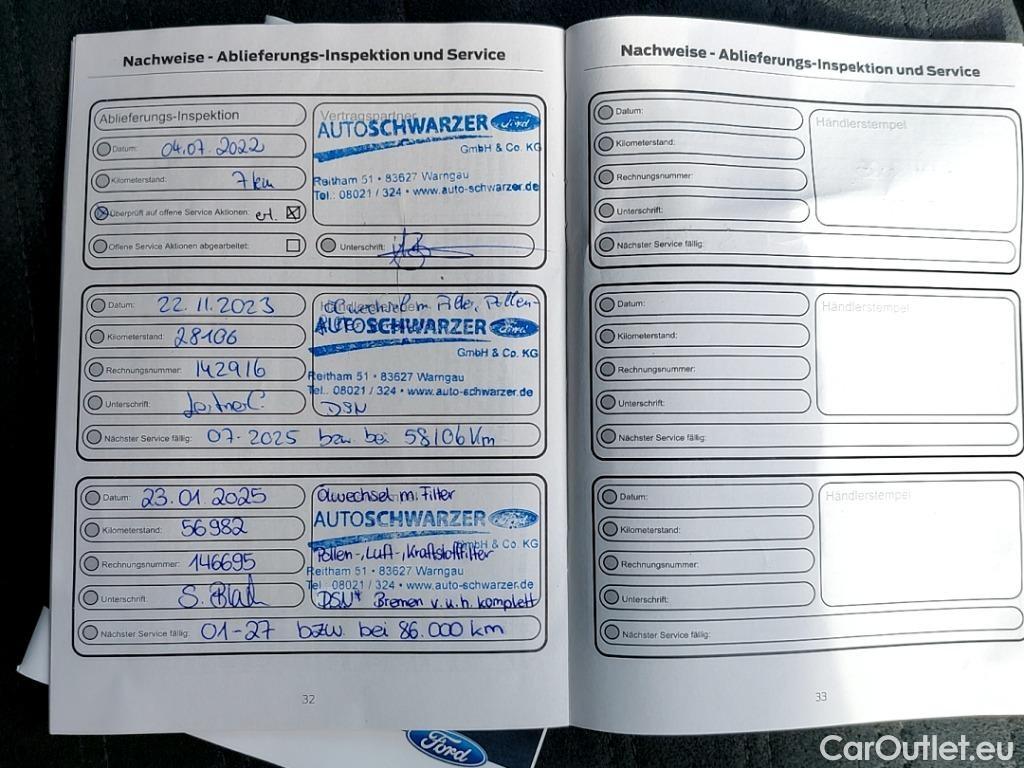 Nachweise - Ablieferungs-Inspektion und Service
Ablieferungs-Inspektion
Datum: 04.07.2022
Kilometerstand: 7 km
Überprüft auf offene Service Aktionen: erl.
Offene Service Aktionen abgearbeitet:
Vertragspartner
AUTOSCHWARZER Ford
GmbH & Co. KG
Reitham 51 • 83627 Warngau
Tel.: 08021 / 324 • www.auto-schwarzer.de
Unterschrift:
Datum: 22.11.2023
Kilometerstand: 28106
Rechnungsnummer: 142916
Unterschrift:
Ölwechsel m. Filter, Pollen-
AUTOSCHWARZER Ford
GmbH & Co. KG
Reitham 51 • 83627 Warngau
Tel.: 08021 / 324 • www.auto-schwarzer.de
DSN
Nächster Service fällig: 07-2025 bzw. bei 58106 Km
Datum: 23.01.2025
Kilometerstand: 56982
Rechnungsnummer: 146695
Unterschrift:
Ölwechsel m. Filter
AUTOSCHWARZER Ford
GmbH & Co. KG
Pollen-, Luft-, Kraftstofffilter
Reitham 51 • 83627 Warngau
Tel.: 08021 / 324 • www.auto-schwarzer.de
DSN* Bremen v.u.h. komplett
Nächster Service fällig: 01-27 bzw. bei 86.000 km
32
Nachweise - Ablieferungs-Inspektion und Service
Datum:
Kilometerstand:
Rechnungsnummer:
Unterschrift:
Nächster Service fällig:
Händlerstempel
Datum:
Kilometerstand:
Rechnungsnummer:
Unterschrift:
Nächster Service fällig:
Händlerstempel
Datum:
Kilometerstand:
Rechnungsnummer:
Unterschrift:
Nächster Service fällig:
Händlerstempel
33
Ford
CarOutlet.eu